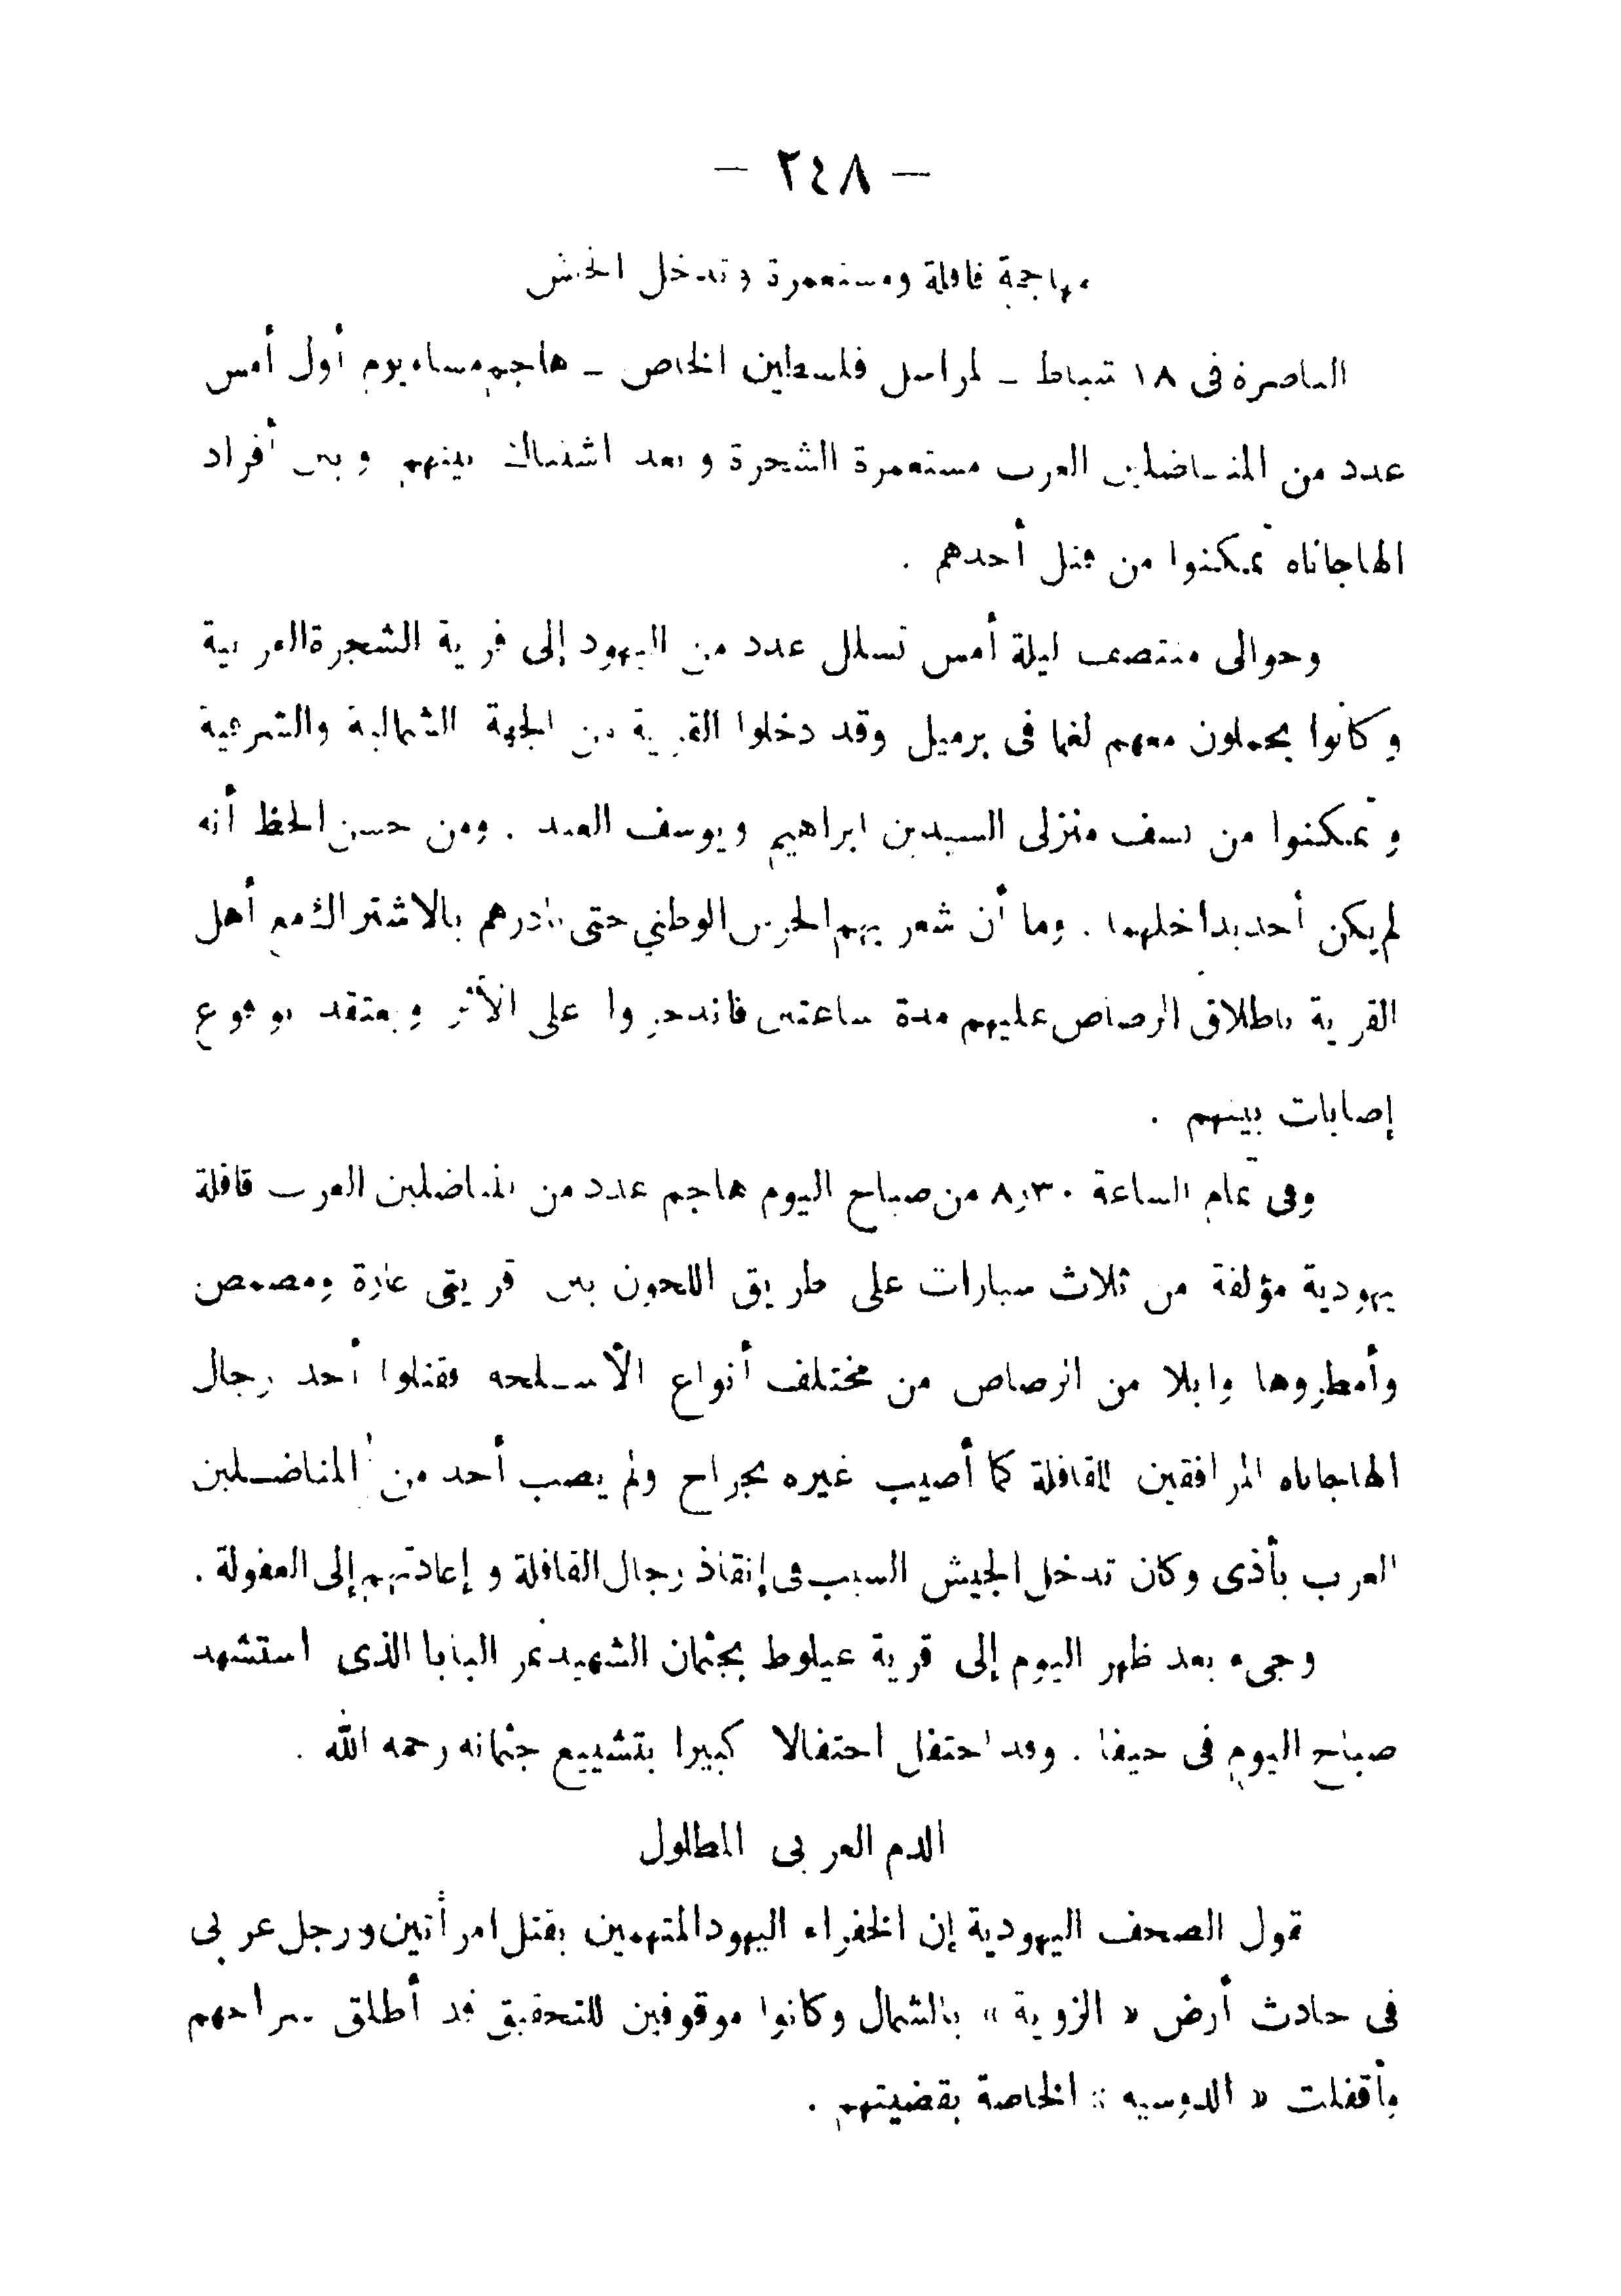 — ٢٤٨ —
مهاجمة قافلة ومستعمرة وتدخل الجيش
الناصرة فى ١٨ شباط – لمراسل فلسطين الخاص – هاجم مساء يوم أول أمس
عدد من المناضلين العرب مستعمرة الشجرة وبعد اشتباك بينهم وبين أفراد
الهاجاناه تمكنوا من قتل أحدهم .
وحوالى منتصف ليلة أمس تسلل عدد من اليهود إلى قرية الشجرة العربية
وكانوا يحملون معهم لغما فى برميل وقد دخلوا القرية من الجهة الشمالية والشرقية
وتمكنوا من نسف منزلى السيدين ابراهيم ويوسف العبد . ومن حسن الحظ أنه
لم يكن أحد بداخلهما . وما أن شعر بهم الحرس الوطني حتى بادرهم بالاشتراك مع أهل
القرية باطلاق الرصاص عليهم مدة ساعتين فاندحروا على الأثر ويعتقد بوقوع
إصابات بينهم .
وفى تمام الساعة ٨٫٣٠ من صباح اليوم هاجم عدد من المناضلين العرب قافلة
يهودية مؤلفة من ثلاث سيارات على طريق اللجون بين قريتى عارة ومصمص
وأمطروها وابلا من الرصاص من مختلف أنواع الأسلحه فقتلوا أحد رجال
الهاجاناه المرافقين للقافلة كما أصيب غيره بجراح ولم يصب أحد من المناضلين
العرب بأذى وكان تدخل الجيش السبب فى إنقاذ رجال القافلة وإعادتهم إلى العفولة .
وجىء بعد ظهر اليوم إلى قرية عيلوط بجثمان الشهيد نمر البابا الذى استشهد
صباح اليوم فى حيفا . وقد احتفل احتفالا كبيرا بتشييع جثمانه رحمه الله .
الدم العربى المطلول
تقول الصحف اليهودية إن الخفراء اليهود المتهمين بقتل امرأتين ورجل عربى
فى حادث أرض « الزوية » بالشمال وكانوا موقوفين للتحقيق قد أطلق سراحهم
وأقفلت « الدوسيه » الخاصة بقضيتهم .